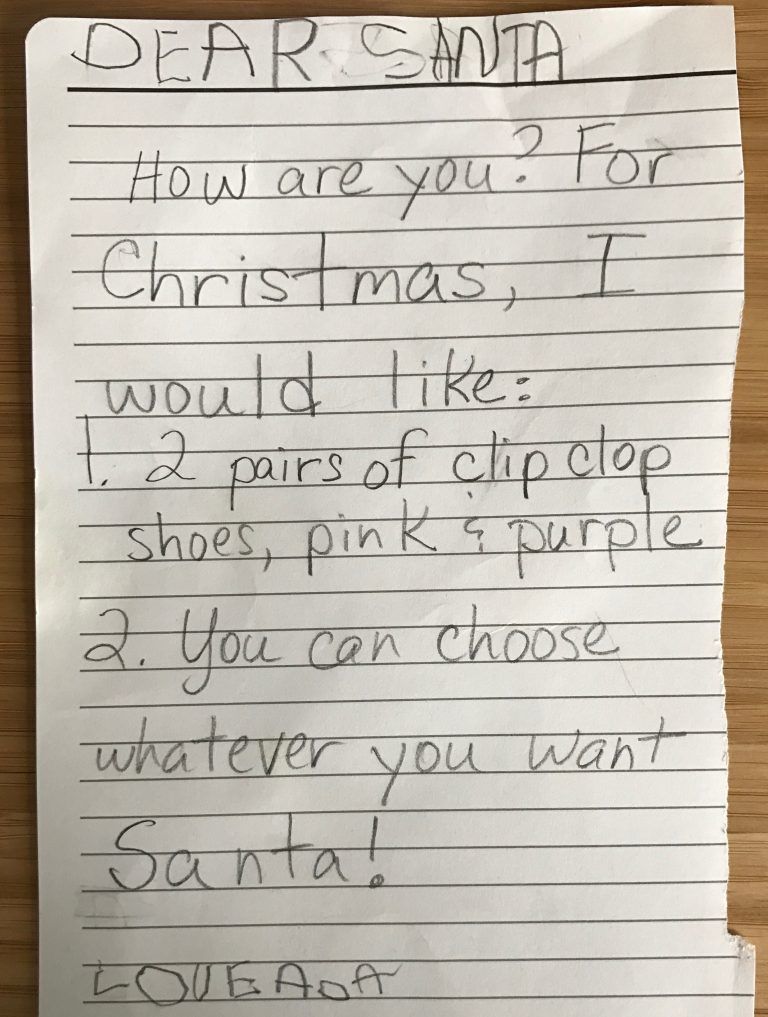 DEAR SANTA
How are you? For
Christmas, I
would like:
1. 2 pairs of clip clop
shoes, pink & purple
2. You can choose
whatever you want
Santa!
LOVE ADA